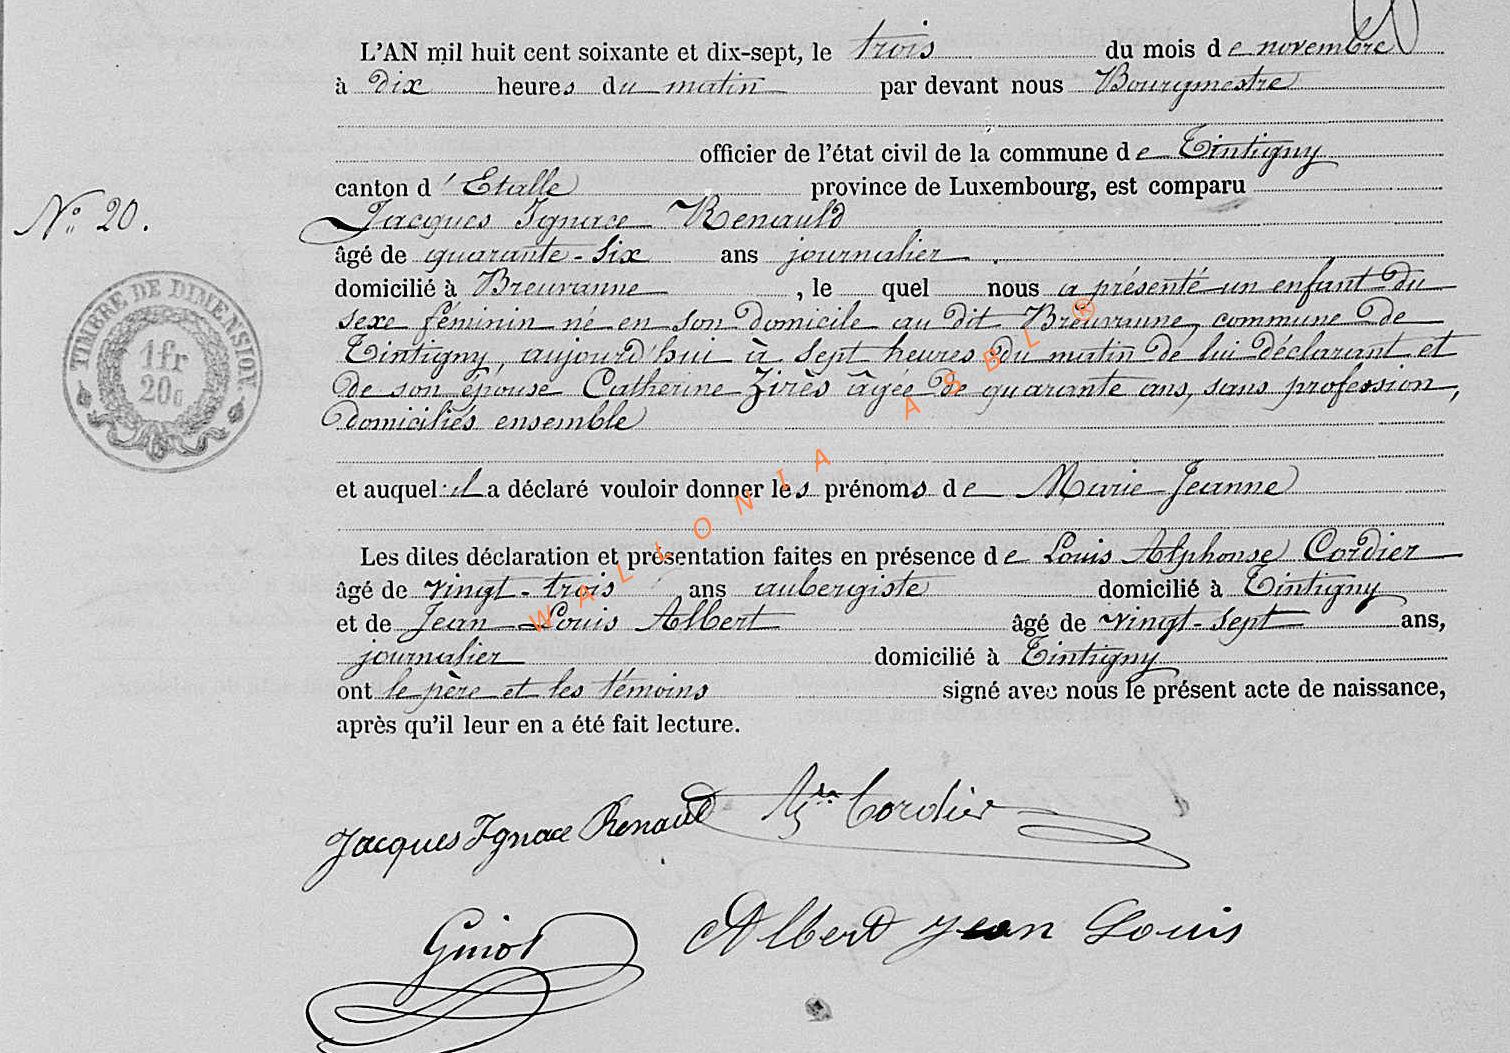 L'AN mil huit cent soixante et dix-sept, le trois du mois de novembre
à dix heures du matin par devant nous Bourgmestre
officier de l'état civil de la commune de Tintigny
canton d'Etalle province de Luxembourg, est comparu
N° 20. Jacques Ignace Renauld
âgé de quarante-six ans journalier
domicilié à Breuvanne, le quel nous a présenté un enfant du
sexe féminin né en son domicile au dit Breuvanne, commune de
Tintigny, aujourd'hui à sept heures du matin de lui déclarant et
de son épouse Catherine Zirès âgée de quarante ans, sans profession,
domiciliés ensemble
et auquel il a déclaré vouloir donner les prénoms de Marie Jeanne
Les dites déclaration et présentation faites en présence de Louis Alphonse Cordier
âgé de vingt-trois ans aubergiste domicilié à Tintigny
et de Jean Louis Albert âgé de vingt-sept ans,
journalier domicilié à Tintigny
ont le père et les témoins signé avec nous le présent acte de naissance,
après qu'il leur en a été fait lecture.
TIMBRE DE DIMENSION
1fr
20c
WALLONIA ASBL ®
Jacques Ignace Renauld Cordier
Guiot Albert Jean Louis